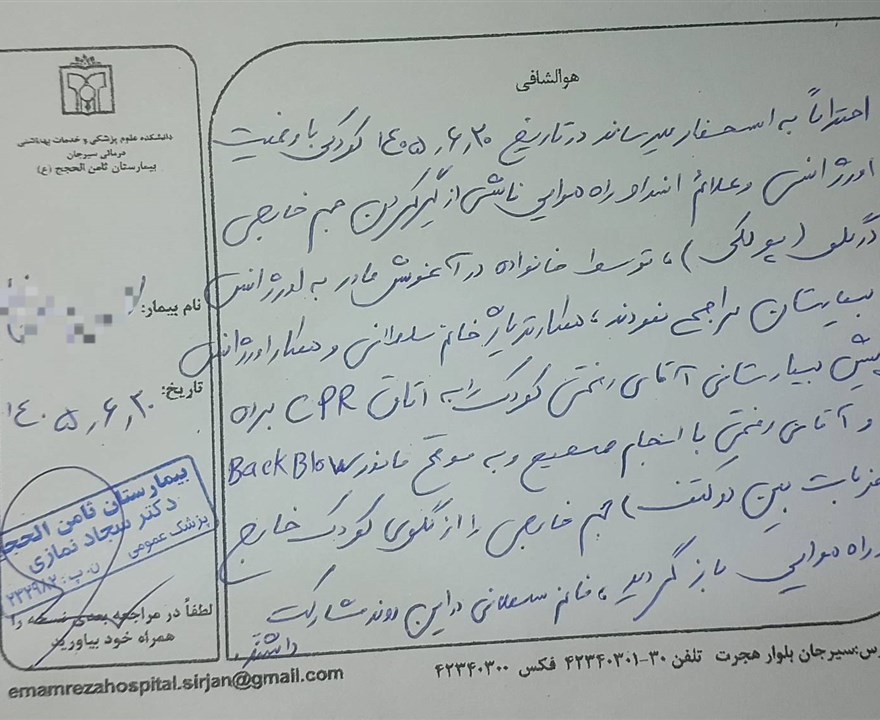 هوالشافی
احتراماً به استحضار میرساند در تاریخ ۱۴۰۵،۶،۳۰ کودکی با وضعیت
اورژانسی و علائم انسداد راه هوایی ناشی از گیر کردن جسم خارجی
در گلو (پولکی)، توسط خانواده در آغوش مادر به اورژانس
بیمارستان مراجعه نمودند، همکار تریاژ خانم سلمانی و همکار اورژانس
پیش بیمارستانی آقای کودک را به اتاق CPR برده
و آقای با انجام صحیح و به موقع مانور Back Blow
ضربات بین دو کتف) جسم خارجی را از گلوی کودک خارج
راه هوایی باز گردید، خانم سلمانی در این روند مشارکت
داشتند.
دانشکده علوم پزشکی و خدمات بهداشتی
درمانی سیرجان
بیمارستان ثامن الحجج (ع)
نام بیمار:
تاریخ: ۱۴۰۵،۶،۳۰
بیمارستان ثامن الحجج
دکتر سجاد نمازی
پزشک عمومی ن.پ: ۲۳۲۹۸۲
لطفاً در مراجعه بعدی نسخه را
همراه خود بیاورید
رس:سیرجان بلوار هجرت تلفن ۳۰-۴۲۳۴۰۳۰۱ فکس ۴۲۳۴۰۳۰۰
emamrezahospital.sirjan@gmail.com